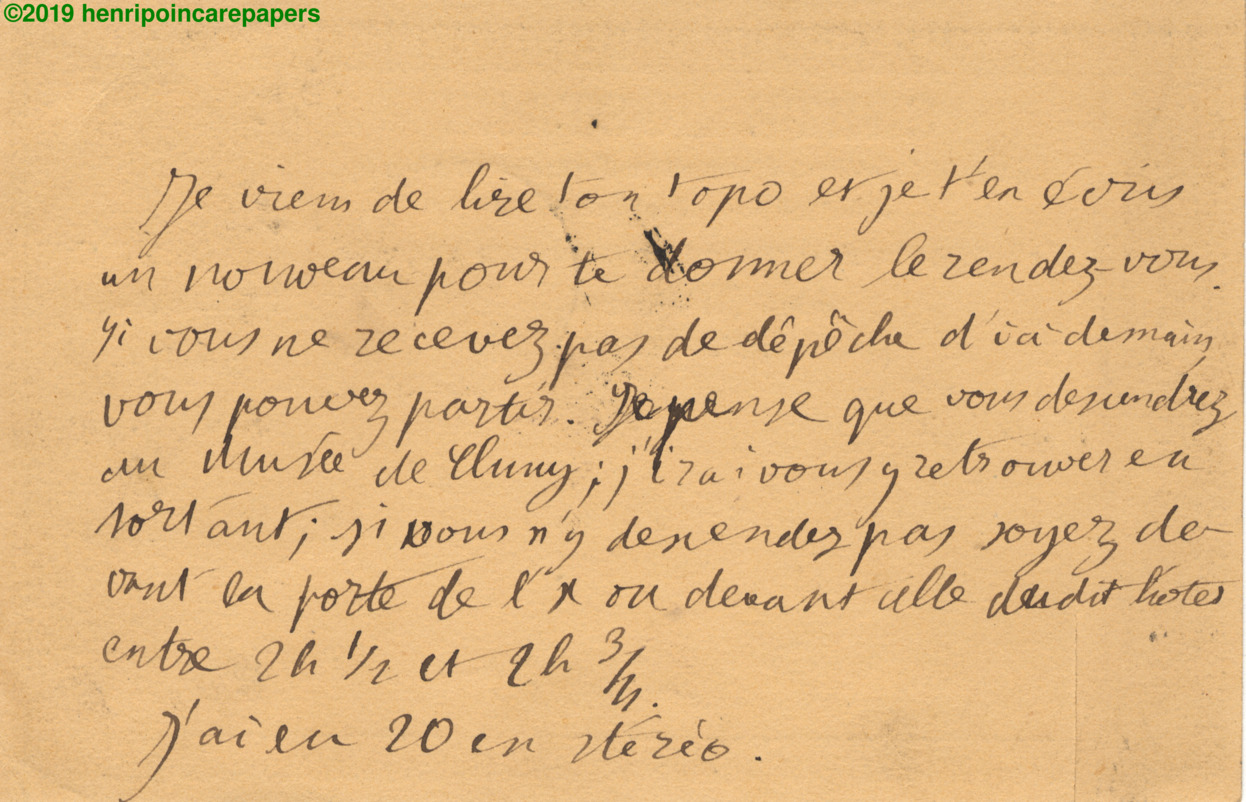 ©2019 henripoincarepapers
Je viens de lire ton topo et je t'en écris
un nouveau pour te donner le rendez-vous.
Si vous ne recevez pas de dépêche d'ici demain
vous pouvez partir. Je pense que vous descendrez
au Musée de Cluny; j'irai vous y retrouver en
sortant; si vous n'y descendez pas soyez de-
vant la porte de l'X ou devant celle dudit hôtel
entre 2h 1/2 et 2h 3/4.
J'ai eu 20 en stéréo.